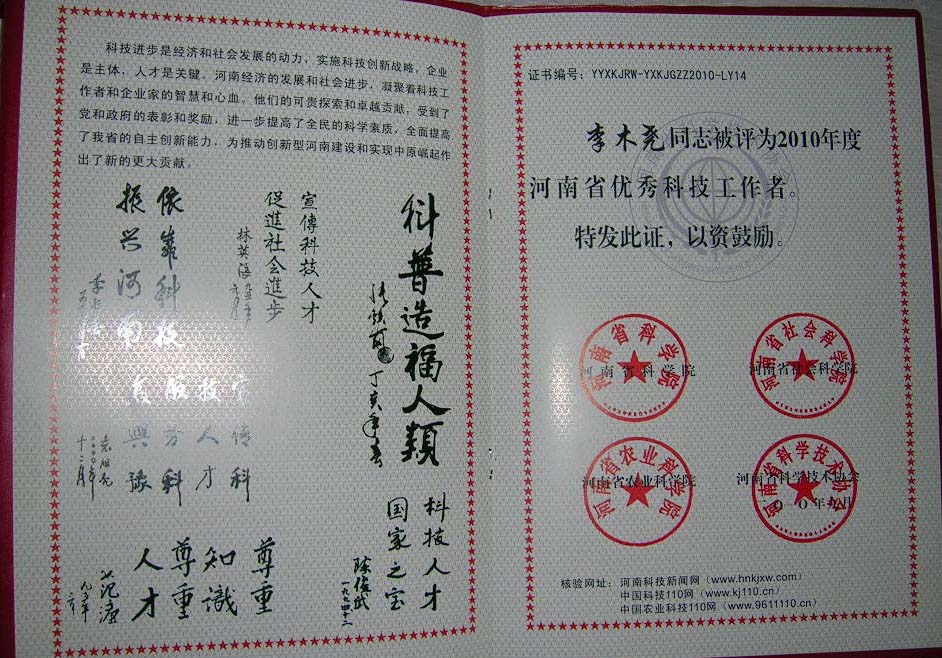 科技进步是经济和社会发展的动力，实施科技创新战略，企业
是主体，人才是关键。河南经济的发展和社会进步，凝聚着科技工
作者和企业家的智慧和心血，他们的可贵探索和卓越贡献，受到了
党和政府的表彰和奖励，进一步提高了全民的科学素质，全面提高
了我省的自主创新能力，为推动创新型河南建设和实现中原崛起作
出了新的更大贡献。
科普造福人類
丁亥年
宣傳科技人才
促進社会進步
林英海
依靠科技
振兴河南
科技人才
國家之宝
陈俊武
一九九四十二
尊重
知識
尊重
人才
证书编号：YYXKJRW-YXKJGZZ2010-LY14
李木尧同志被评为2010年度
河南省优秀科技工作者。
特发此证，以资鼓励。
河南省科学院
河南省科学院
河南省社会科学院
河南省社会科学院
河南省农业科学院
河南省农业科学院
河南省科学技术协会
河南省科学技术协会
核验网址：河南科技新闻网（www.hnkjxw.com）
中国科技110网（www.kj110.cn）
中国农业科技110网（www.9611110.cn）